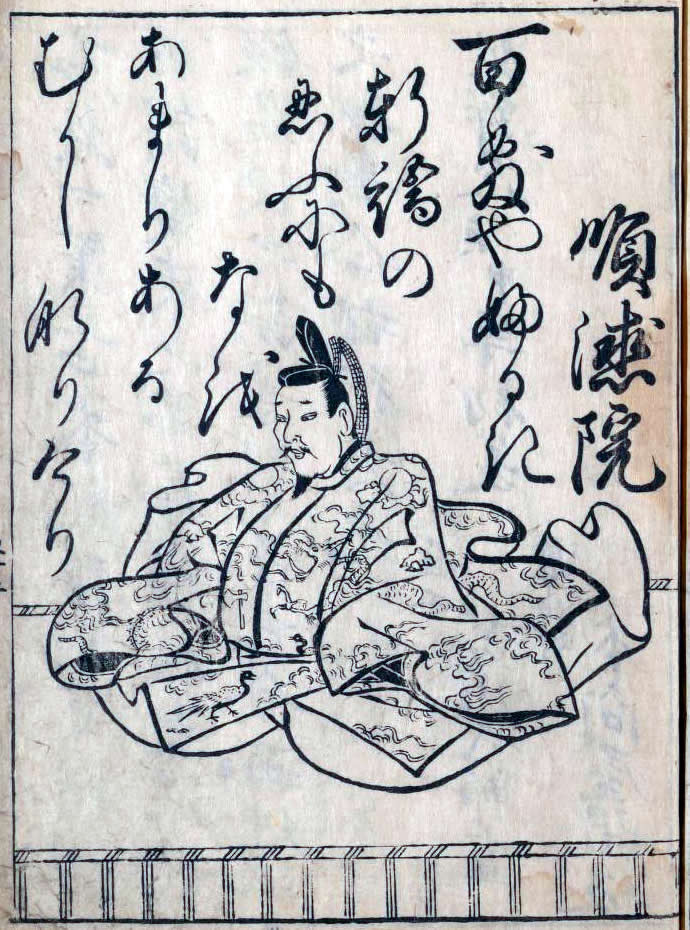 順徳院
百敷や婦るき
軒端の
忍ふにも
なを
あまりある
むかし
なりけり